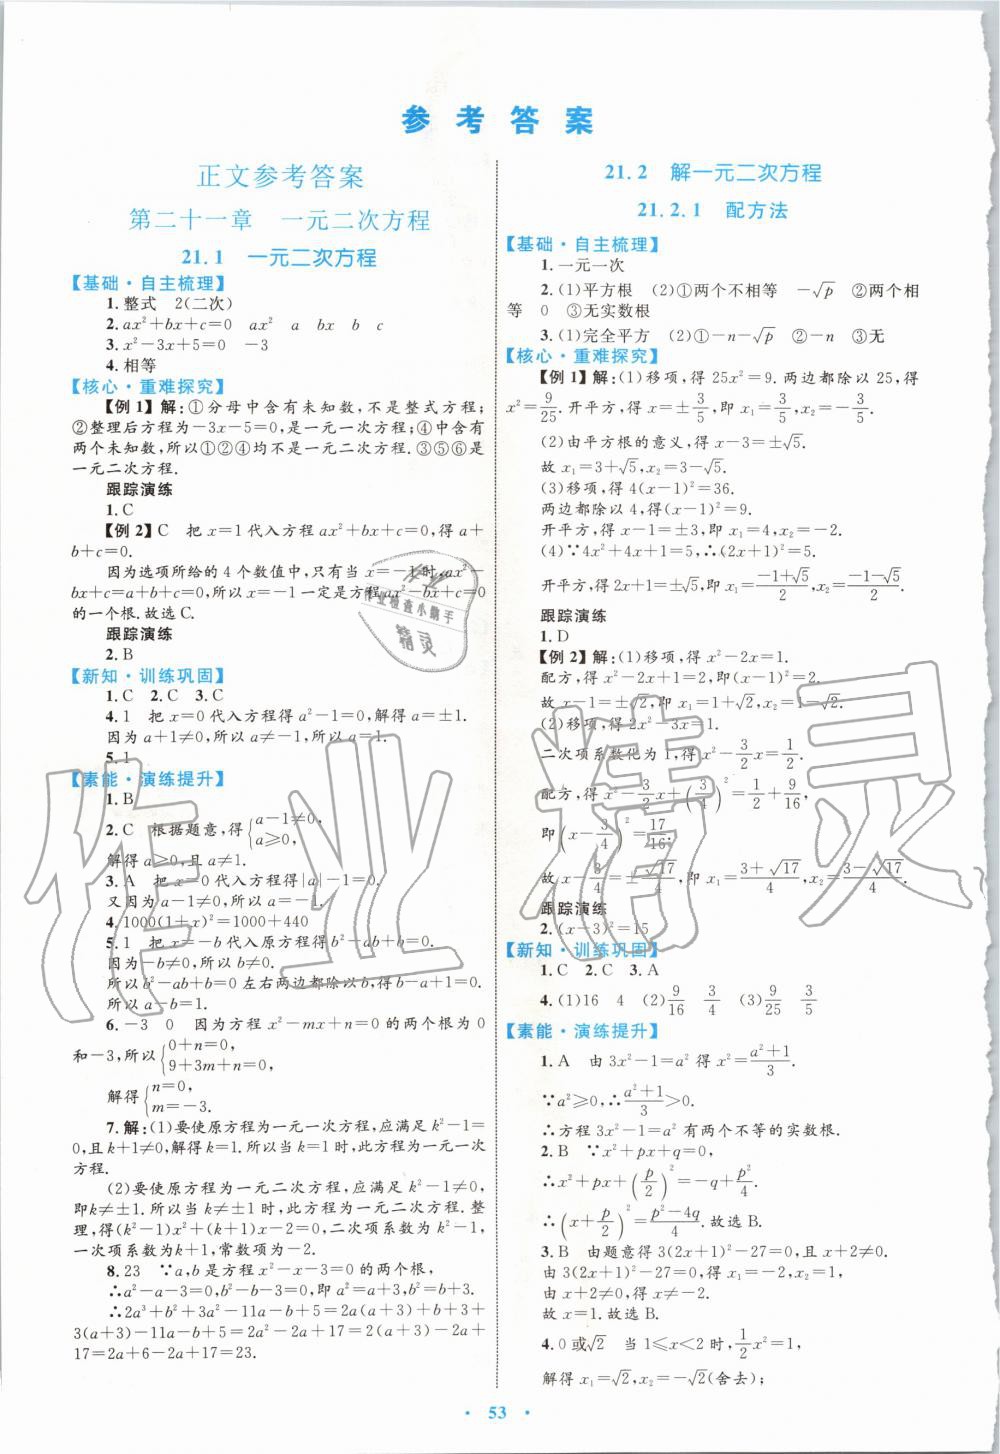 参 考 答 案
正文参考答案
第二十一章　一元二次方程
21.1　一元二次方程
【基础·自主梳理】
1.整式　2(二次)
2.ax²+bx+c=0　ax²　a　bx　b　c
3.x²-3x+5=0　-3
4.相等
【核心·重难探究】
【例1】解:①分母中含有未知数,不是整式方程;
②整理后方程为-3x-5=0,是一元一次方程;④中含有
两个未知数,所以①②④均不是一元二次方程.③⑤⑥是
一元二次方程.
跟踪演练
1.C
【例2】C　把x=1代入方程ax²+bx+c=0,得a+
b+c=0.
因为选项所给的4个数值中,只有当x=-1时,ax²-
bx+c=a+b+c=0,所以x=-1一定是方程ax²-bx+c=0
的一个根.故选C.
跟踪演练
2.B
【新知·训练巩固】
1.C　2.C　3.C
4.1　把x=0代入方程得a²-1=0,解得a=±1.
因为a+1≠0,所以a≠-1,所以a=1.
5.1
【素能·演练提升】
1.B
2.C　根据题意,得{a-1≠0, a≥0,
解得a≥0,且a≠1.
3.A　把x=0代入方程得|a|-1=0,
又因为a-1≠0,所以a=-1.
4.1000(1+x)²=1000+440
5.1　把x=-b代入原方程得b²-ab+b=0.
因为-b≠0,所以b≠0.
所以b²-ab+b=0左右两边都除以b,得b-a+1=0,
所以a-b=1.
6.-3　0　因为方程x²-mx+n=0的两个根为0
和-3,所以{0+n=0, 9+3m+n=0,
解得{n=0, m=-3.
7.解:(1)要使原方程为一元一次方程,应满足k²-1=
0,且k+1≠0,解得k=1.所以当k=1时,此方程为一元一次
方程.
(2)要使原方程为一元二次方程,应满足k²-1≠0,
即k≠±1.所以当k≠±1时,此方程为一元二次方程.整
理,得(k²-1)x²+(k+1)x-2=0,二次项系数为k²-1,
一次项系数为k+1,常数项为-2.
8.23　∵a,b是方程x²-x-3=0的两个根,
∴a²-a-3=0,b²-b-3=0,即a²=a+3,b²=b+3.
∴2a³+b²+3a²-11a-b+5=2a(a+3)+b+3+
3(a+3)-11a-b+5=2a²-2a+17=2(a+3)-2a+
17=2a+6-2a+17=23.
21.2　解一元二次方程
21.2.1　配方法
【基础·自主梳理】
1.一元一次
2.(1)平方根　(2)①两个不相等　-√p　②两个相
等　0　③无实数根
3.(1)完全平方　(2)①-n-√p　②-n　③无
【核心·重难探究】
【例1】解:(1)移项,得25x²=9.两边都除以25,得
x²=9/25.开平方,得x=±3/5,即x₁=3/5,x₂=-3/5.
(2)由平方根的意义,得x-3=±√5.
故x₁=3+√5,x₂=3-√5.
(3)移项,得4(x-1)²=36.
两边都除以4,得(x-1)²=9.
开平方,得x-1=±3,即x₁=4,x₂=-2.
(4)∵4x²+4x+1=5,∴(2x+1)²=5.
开平方,得2x+1=±√5,即x₁=(-1+√5)/2,x₂=(-1-√5)/2.
跟踪演练
1.D
【例2】解:(1)移项,得x²-2x=1.
配方,得x²-2x+1=2,即(x-1)²=2.
故x-1=±√2,即x₁=1+√2,x₂=1-√2.
(2)移项,得2x²-3x=1.
二次项系数化为1,得x²-3/2x=1/2.
配方,得x²-3/2x+(3/4)²=1/2+9/16,
即(x-3/4)²=17/16.
故x-3/4=±√17/4,即x₁=(3+√17)/4,x₂=(3-√17)/4.
跟踪演练
2.(x-3)²=15
【新知·训练巩固】
1.C　2.C　3.A
4.(1)16　4　(2)9/16　3/4　(3)9/25　3/5
【素能·演练提升】
1.A　由3x²-1=a²得x²=(a²+1)/3.
∵a²≥0,∴(a²+1)/3>0.
∴方程3x²-1=a²有两个不等的实数根.
2.B　∵x²+px+q=0,
∴x²+px+(p/2)²=-q+p²/4.
∴(x+p/2)²=(p²-4q)/4.故选B.
3.B　由题意得3(2x+1)²-27=0,x+2≠0,
由3(2x+1)²-27=0,得x₁=-2,x₂=1,
由x+2≠0,得x≠-2.
故x=1.故选B.
4.0或√2　当1≤x<2时,1/2x²=1,
解得x₁=√2,x₂=-√2(舍去);
· 53 ·
作业检查小帮手
精灵
作业精灵